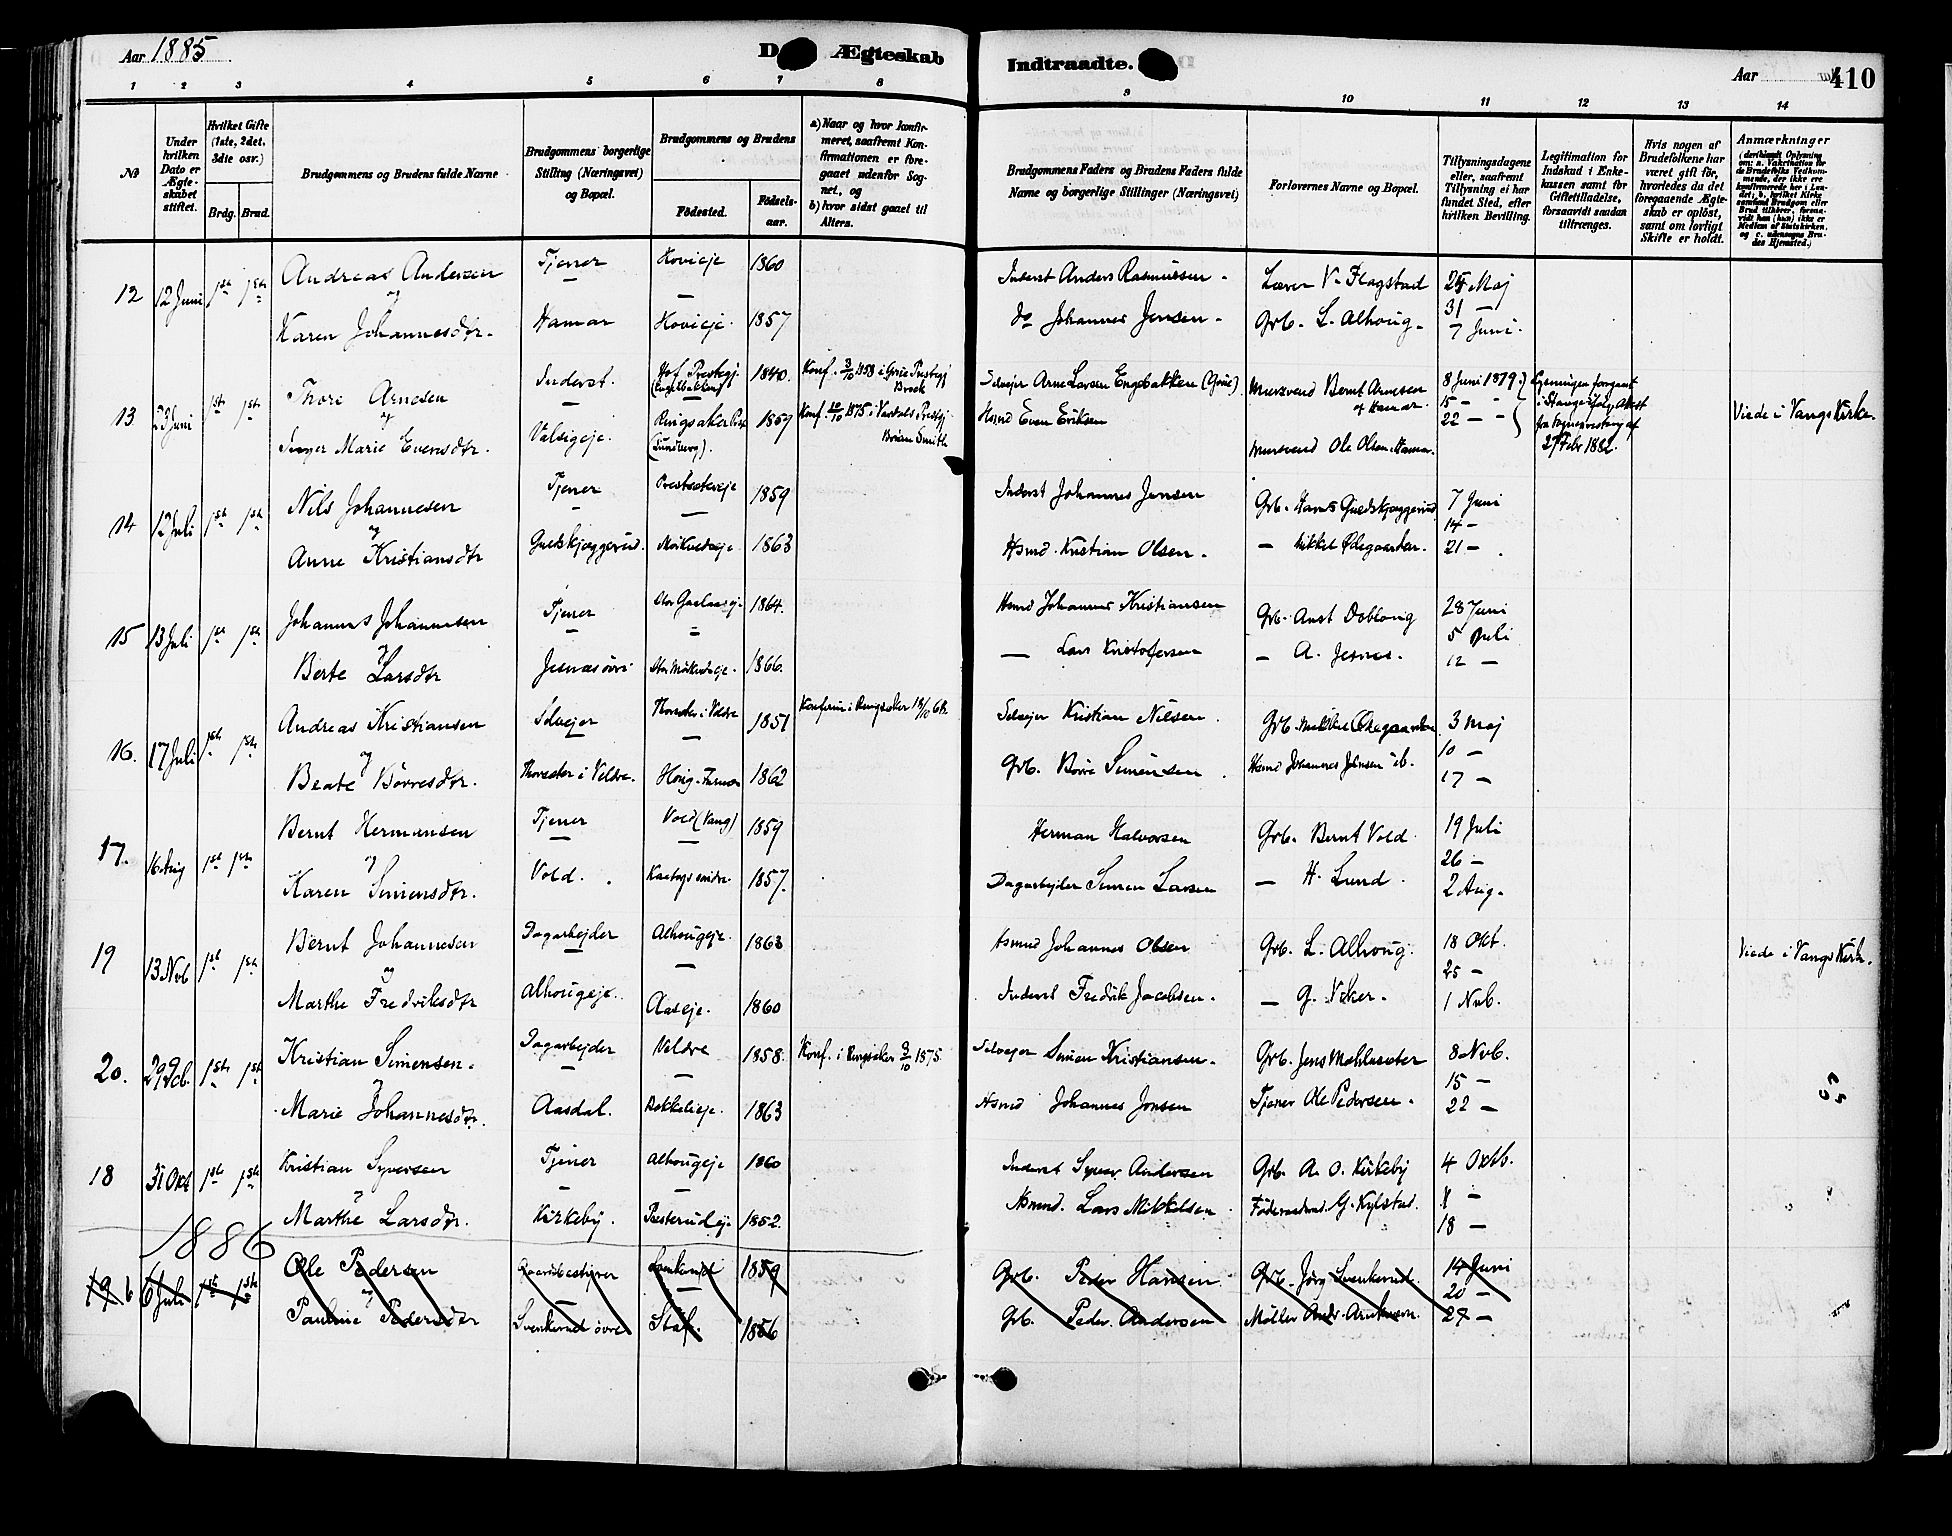 Aar 1885
D Ægteskab
Indtraadte.
Aar
410
1 2 3 4 5 6 7 8 9 10 11 12 13 14
No
Under hvilken Dato er Ægteskabet stiftet.
Hvilket Gifte (1ste, 2det, 3die osv.)
Brdg. Brud.
Brudgommens og Brudens fulde Navne
Brudgommens borgerlige Stilling (Næringsvei) og Bopæl.
Brudgommens og Brudens
Födested.
Födsels-aar.
a) Naar og hvor konfirmeret, saafremt Konfirmationen er foregaaet udenfor Sognet, og
b) hvor sidst gaaet til Alters.
Brudgommens Faders og Brudens Faders fulde Navne og borgerlige Stillinger (Næringsvei)
Forlovernes Navne og Bopæl.
Tillysningsdagene eller, saafremt Tillysning ei har fundet Sted, efter hvilken Bevilling.
Legitimation for Indskud i Enkekassen samt for Giftetilladelse, forsaavidt saadan tiltrænges.
Hvis nogen af Brudefolkene har været gift før, hvorledes da det foregaaende Ægteskab er oplöst, samt om lovligt Skifte er holdt.
Anmærkninger
12 12 Juni 1ste 1ste Andreas Andersen Tjener Hovieje 1860 Inderst Anders Rasmussen Lærer V. Flagstad 25 Maj
og 31 —
Karen Johannesdtr. Hamar Hovieje 1857 do Johannes Jensen Grb. L. Alhoug 7 Juni
13 23 Juni 1ste 1ste Thore Arnesen Inderst. Hof Prestegj. 1840. Konf. 3/10 1858 i Grue Prestegj. Selvejer Arne Larsen Engebakken (Grue) Mursvend Bernt Arnesen af Hamar 8 Juni 1879
og 15 — 22 —
Inger Marie Evensdtr. Valsigeje. Ringsaker (Lundberg). 1859 Konf. 10/10 1875 i Vardals Prestegj. Hsmd Even Eriksen Mursvend Ole Olsen Hamar. 27 Febr 1882. Viede i Vangs Kirke.
14 12 Juli 1ste 1ste Nils Johannesen Tjener Prestsætereje 1859 Inderst Johannes Jensen Grb. Hans Gudskjæggerud 7 Juni
og 14 —
Anne Kristiansdtr Gudskjæggerud. 1863 Hsmd. Kristian Olsen. — Mikkel Ødegaarden. 21 —
15 13 Juli 1ste 1ste Johannes Johannesen Tjener 1864. Hsmd Johannes Kristiansen Grb. Anst Dobloug 28 Juni
og 5 Juli
Berte Larsdtr Jesnæs øvre 1866. — Lars Kristofersen — A. Jesnes. 12 —
16. 17 Juli 1ste 1ste Andreas Kristiansen Selvejer Thorsster i Veldre 1851 Selvejer Kristian Nilsen Grb. Mikkel Ødegaarden 3 Maj
og 10 —
Beate Börresdtr. Thorsster i Veldre. 1862 Grb. Börre Simensen 17 —
17. 16 Aug 1ste 1ste Bernt Hermansen Tjener Vold (Vang) 1859 Herman Halvorsen Grb. Bernt Vold 19 Juli
og 26 —
Karen Simensdtr. Vold. 1857. Dagarbejder Simen Larsen — H. Lund. 2 Aug.
19 13 Nvb 1ste 1ste Bernt Johannesen Dagarbejder Alhougeje 1863 Hsmd Johannes Olsen Grb. L. Alhoug. 18 Okt.
og 25 —
Marthe Fredriksdtr Alhougeje. Aaseje. 1860 Inderst Fredrik Jacobsen — G. Viker. 1 Nvb. Viede i Vangs Kirke.
20. 29 Dcb. 1ste 1ste Kristian Simensen. Dagarbejder Veldre 1858. Konf. i Ringsaker 3/10 1875. Selvejer Simen Kristiansen. Grb. Jens Mæhlumseter 8 Nvb.
og 15 —
Marie Johannesdtr. Aasdal. Bekkelieje. 1863 Hsmd Johannes Jonsen Tjener Ole Pedersen. 22 —
18 31 Okt 1ste 1ste Kristian Syversen Tjener Alhougeje 1860 Inderst Syver Andersen Grb. A. O. Kirkeby 4 Oktb.
og
Marthe Larsdtr. Kirkeby. Presterudeje 1852. Hsmd. Lars Mikkelsen Föderaadsmd. G. Kylstad. 18 —
1886
19 6 Juli 1ste 1ste Ole Pedersen Gaardbestyrer Svenkerud 1859 Grb. Peder Hansen Grb. Jörg Svenkerud. 14 Juni
og 20 —
Pauline Pedersdtr Svenkerud øvre Staf. 1856 Grb. Peder Andersen Møller Andr. Arnkværn. 27 —